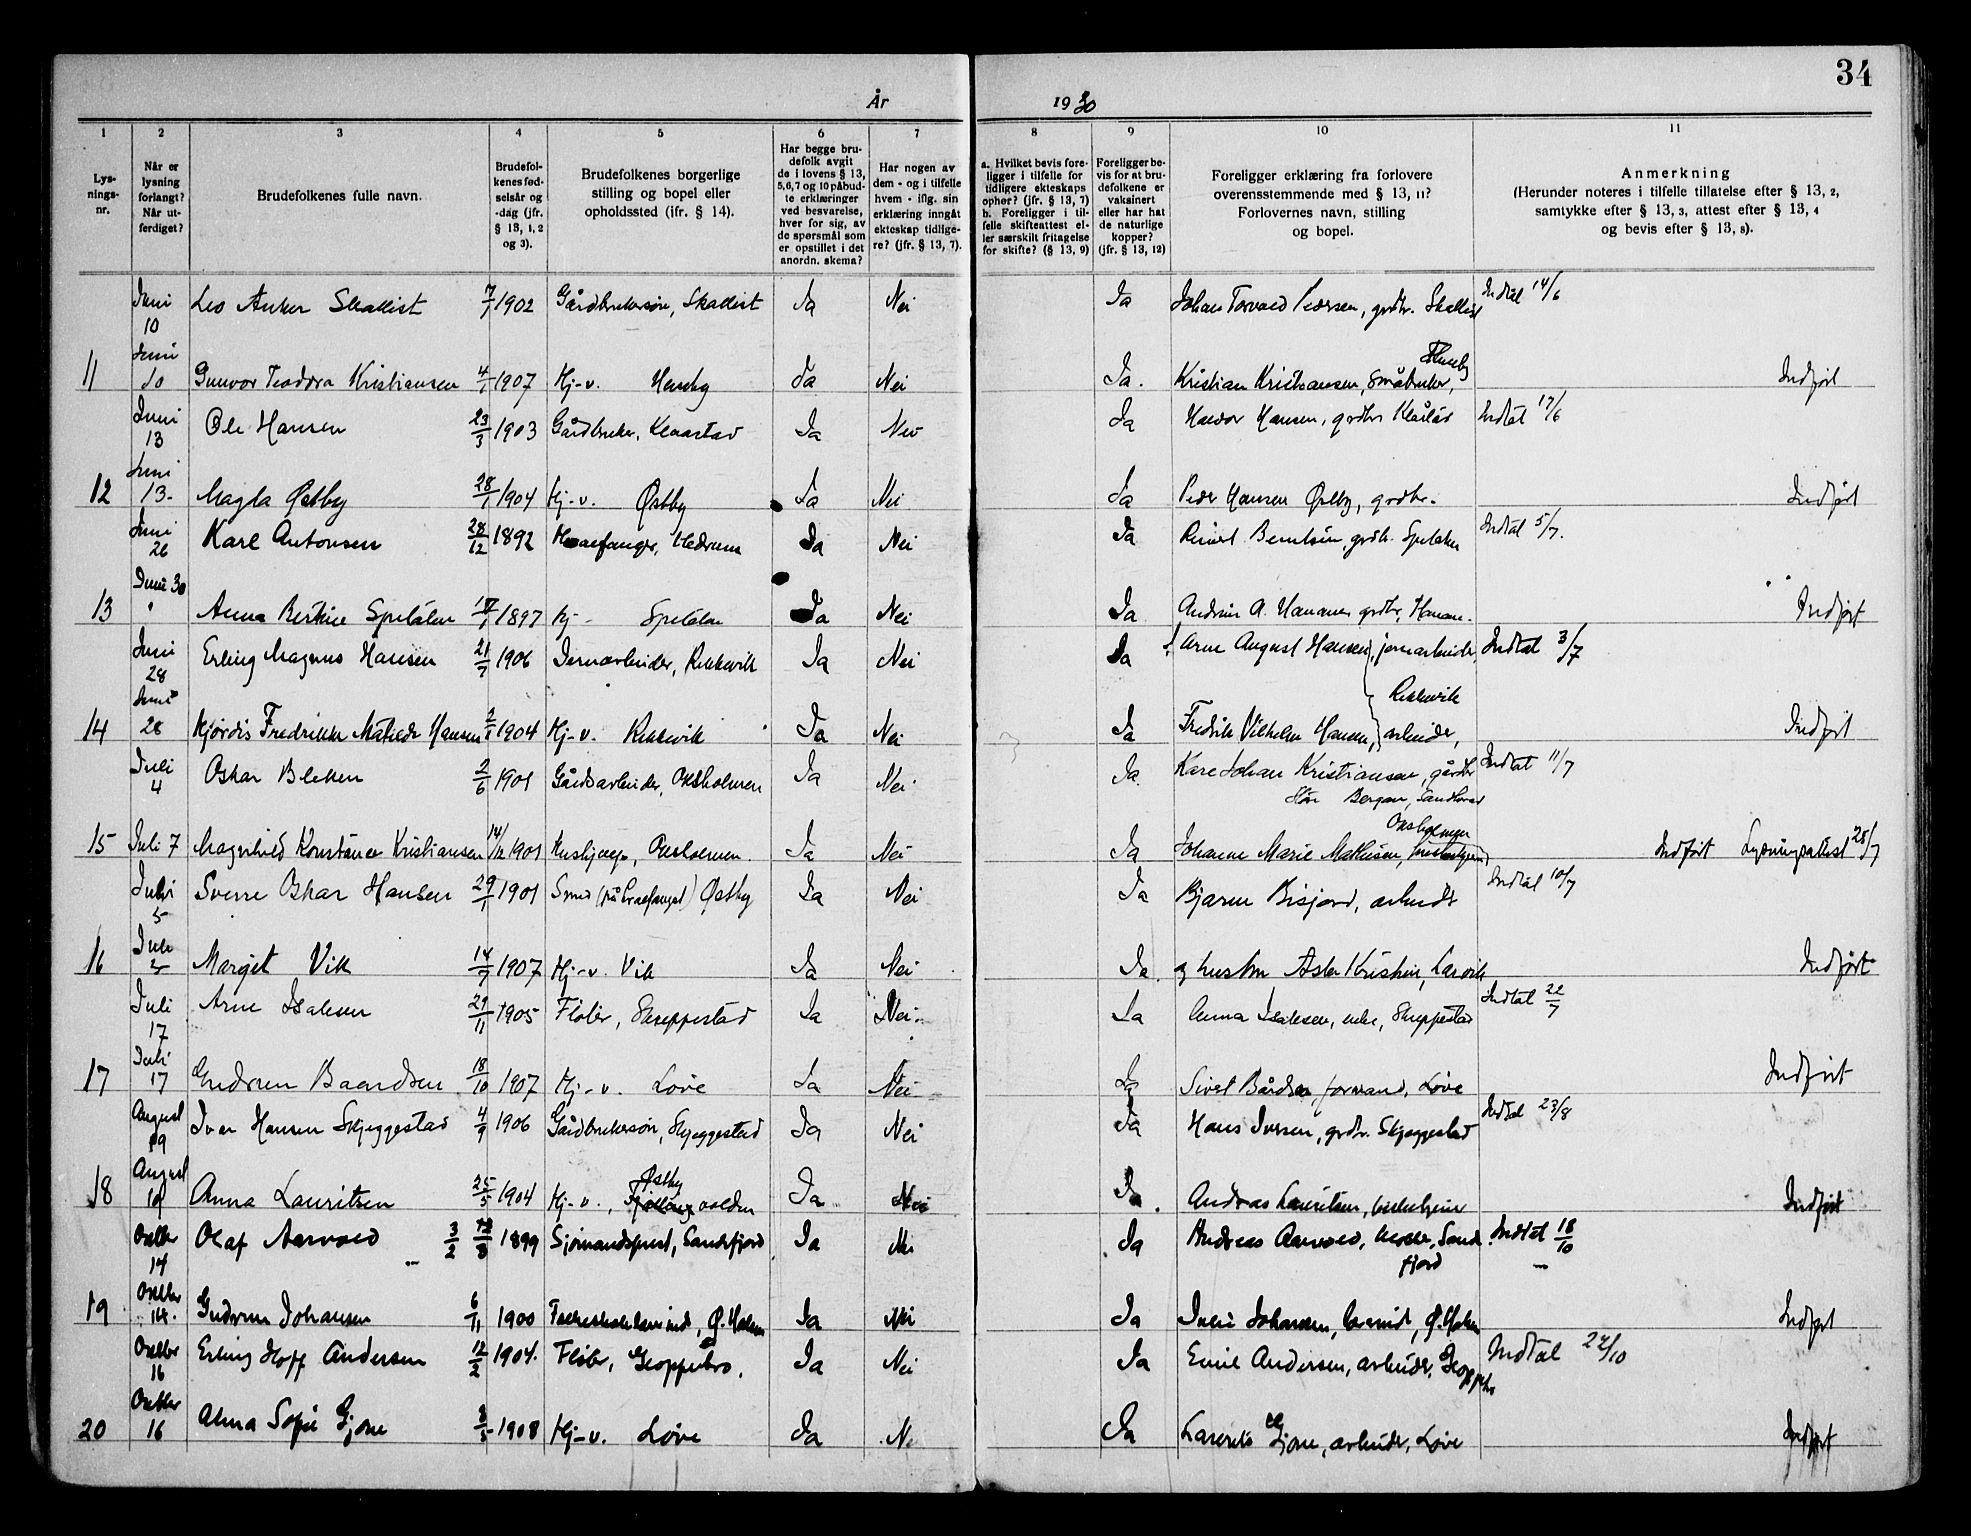 34
År 1930
1 2 3 4 5 6 7 8 9 10 11
Lysnings-nr.
Når er lysning forlangt? Når utferdiget?
Brudefolkenes fulle navn.
Brudefolkenes fødselsår og -dag (jfr. § 13, 1, 2 og 3).
Brudefolkenes borgerlige stilling og bopel eller opholdssted (jfr. § 14).
Har begge brudefolk avgit de i lovens § 13, 5,6,7 og 10 påbudte erklæringer ved besvarelse, hver for sig, av de spørsmål som er opstillet i det anordn. skema?
Har nogen av dem - og i tilfelle hvem - iflg. sin erklæring inngåt ekteskap tidligere? (jfr. § 13, 7).
a. Hvilket bevis foreligger i tilfelle for tidligere ekteskaps ophør? (jfr. § 13, 7) b. Foreligger i tilfelle skifteattest eller særskilt fritagelse for skifte? (§ 13, 9)
Foreligger bevis for at brudefolkene er vaksinert eller har hat de naturlige kopper? (jfr. § 13, 12)
Foreligger erklæring fra forlovere overensstemmende med § 13, 11? Forlovernes navn, stilling og bopel.
Anmerkning (Herunder noteres i tilfelle tillatelse efter § 13, 2, samtykke efter § 13, 3, attest efter § 13, 4 og bevis efter § 13, 8).
Juni 10 Leo Anker Skallist 7/7 1902 Gårdbrukersøn, Skallist Ja Nei Ja Johan Torvald Pedersen, grdbr. Skallist Indtal 14/6
11 Juni 10 Gunvor Teodora Kristiansen 4/1 1907 Hj-v. Ja Nei Ja. Kristian Kristiansen, Småbruker, Indført
Juni 13 Ole Hansen 23/3 1903 Gårdbruker, Klaastad Ja Nei Ja Hansen, grdbr Klåstad Indtal 17/6
12 Juni 13- Magda Østby 28/1 1904 Hj-v. Østby Ja Nei Ja Peder Hansen Østby, grdbr. Indført
Juni 26 Karl Antonsen 28/12 1892 Hvalfanger, Hedrum Ja Nei Ja grdbr. Indtal 5/7.
13 Juni 30 Anna 1897 Hj- Ja Nei Ja Indført
Juni 28 Erling Magnus Hansen 21/7 1906 Jernarbeider, Rekkevik Ja Nei Ja Arne August Hansen, jernarbeider, Rekkevik Indtal 3/7
14 Juni 28 Hjørdis Fredrikke Matilde Hansen 1904 Hj-v. Rekkevik Ja Nei Ja Fredrik Vilhelm Hansen, arbeider, Indført
Juli 4 Oskar Bleken 2/6 1901 Gårdsarbeider, Oksholmen Ja Nei Ja. Kare Johan Kristiansen, gårdbr Bergan, Indtal 11/7
15 Juli 7 Magnhild Konstance Kristiansen 14/12 1901 Hushjelp, Oksholmen. Ja Nei Ja Johanne Marie Mathisen, Oksholmen Indført Lysningsattest 28/7
Juli 5 Sverre Oskar Hansen 29/1 1901 Smed (på hvalfangst) Østby Ja Nei Ja Bjarne Bisjord, arbeider Indtal 10/7
16 Juli 5 Margit Vik 14/7 1907 Hj-v. Vik Ja Nei Ja. og hustru Kristine, Larvik Indført
Juli 17 Arne Isaksen 29/11 1905 Fløter, Skreppestad Ja Nei Ja Anna Isaksen, enke, Skreppestad Indtal 22/7
17 Juli 17 Gudrun Baardsen 18/10 1907 Hj-v. Løve Ja Nei Ja Sivert Bårdsen, formand, Løve Indført
August 19 Iver Hansen Skjeggestad 4/9 1906 Gårdbrukersøn, Skjeggestad Ja Nei Ja Hans Iversen, grdbr. Skjeggestad Indtal 23/8
18 August 19 Anna Lauritsen 25/5 1904 Hj-v., Østby Ja Nei Ja. Andreas Lauritsen, Indført
Oktbr 14 Olaf Aarvold 3/2 1899 Sjømandsprest, Sandefjord Ja Nei Ja Andreas Aarvold, Sandefjord Indtal 18/10
19 Oktbr 14. Gudrun Johansen 6/11 1900 Folkeskolelærerinde, Ø. Halsen Ja Nei Ja Johansen, Ø. Halsen Indført
Oktbr 16 Erling Hoff Andersen 12/2 1904. Fløter, Gloppebro. Ja Nei Ja Emil Andersen, arbeider, Indtal 22/10
20 Oktbr 16 Alma Sofie Gjone 1908 Hj-v. Løve Ja Nei Ja Laurits Gjone, arbeider, Løve Indført